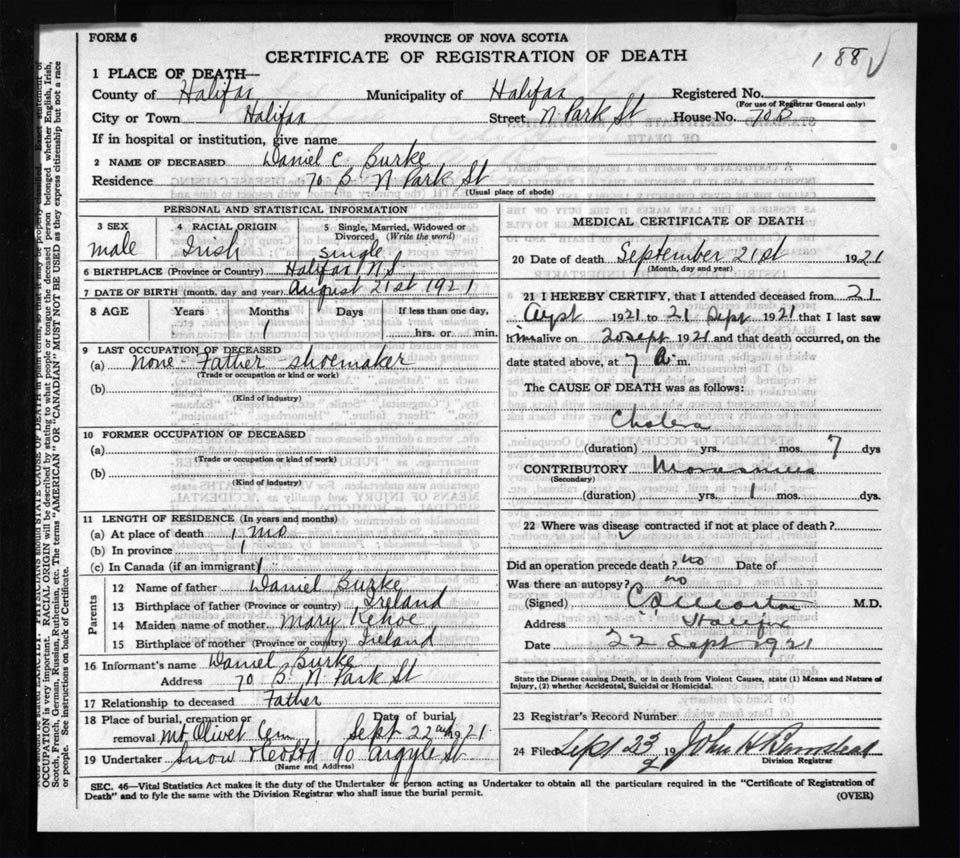 FORM 6
PROVINCE OF NOVA SCOTIA
CERTIFICATE OF REGISTRATION OF DEATH
188
1 PLACE OF DEATH—
County of Halifax Municipality of Halifax Registered No.
(For use of Registrar General only)
City or Town Halifax Street, N Park St House No. 70 B
If in hospital or institution, give name
2 NAME OF DECEASED Daniel C. Burke
Residence 70 B N Park St
(Usual place of abode)
PERSONAL AND STATISTICAL INFORMATION
3 SEX 4 RACIAL ORIGIN 5 Single, Married, Widowed or Divorced (Write the word)
male Irish Single
6 BIRTHPLACE (Province or Country) Halifax N.S.
7 DATE OF BIRTH (month, day and year) August 21st 1921
8 AGE Years Months Days If less than one day,
1 hrs. or min.
9 LAST OCCUPATION OF DECEASED
(a) None Father shoemaker
(Trade or occupation or kind or work)
(b)
(Kind of industry)
10 FORMER OCCUPATION OF DECEASED
(a)
(Trade or occupation or kind of work)
(b)
(Kind of industry)
11 LENGTH OF RESIDENCE (In years and months)
(a) At place of death 1 mo
(b) In province 1
(c) In Canada (if an immigrant) 1
Parents
12 Name of father Daniel Burke
13 Birthplace of father (Province or country) Ireland
14 Maiden name of mother Mary Kehoe
15 Birthplace of mother (Province or country) Ireland
16 Informant's name Daniel Burke
Address 70 B. N Park St
17 Relationship to deceased Father
18 Place of burial, cremation or removal Mt Olivet Cem Date of burial Sept 22 1921
19 Undertaker Snow & Co Ltd 90 Argyle St
(Name and Address)
MEDICAL CERTIFICATE OF DEATH
20 Date of death September 21st 1921
(Month, day and year)
21 I HEREBY CERTIFY, that I attended deceased from 21
1921 to 21 Sept 1921 that I last saw
him alive on 20 Sept 1921 and that death occurred, on the
date stated above, at 7 a. m.
The CAUSE OF DEATH was as follows:
Cholera
(duration) yrs. mos. 7 dys
CONTRIBUTORY Marasmus
(Secondary)
(duration) yrs. 1 mos. dys.
22 Where was disease contracted if not at place of death?
Did an operation precede death? no Date of
Was there an autopsy? no
(Signed) M.D.
Address Halifax
Date 22 Sept 1921
State the Disease causing Death, or in death from Violent Causes, state (1) Means and Nature of
Injury, (2) whether Accidental, Suicidal or Homicidal.
23 Registrar's Record Number
24 Filed Sept 23 19 John H
Division Registrar
SEC. 46—Vital Statistics Act makes it the duty of the Undertaker or person acting as Undertaker to obtain all the particulars required in the "Certificate of Registration of
Death" and to fyle the same with the Division Registrar who shall issue the burial permit.
(OVER)
PHYSICIANS should STATE CAUSE OF DEATH in plain terms, so that it may be properly classified. Exact statement of
OCCUPATION is very important. RACIAL ORIGIN will be described by stating to what people or tongue the deceased person belonged whether English, Irish,
Scotch, French, German, Russian, Ruthenian, etc. The terms "AMERICAN" OR "CANADIAN" MUST NOT BE USED as they express citizenship but not a race
or people. See instructions on back of Certificate.